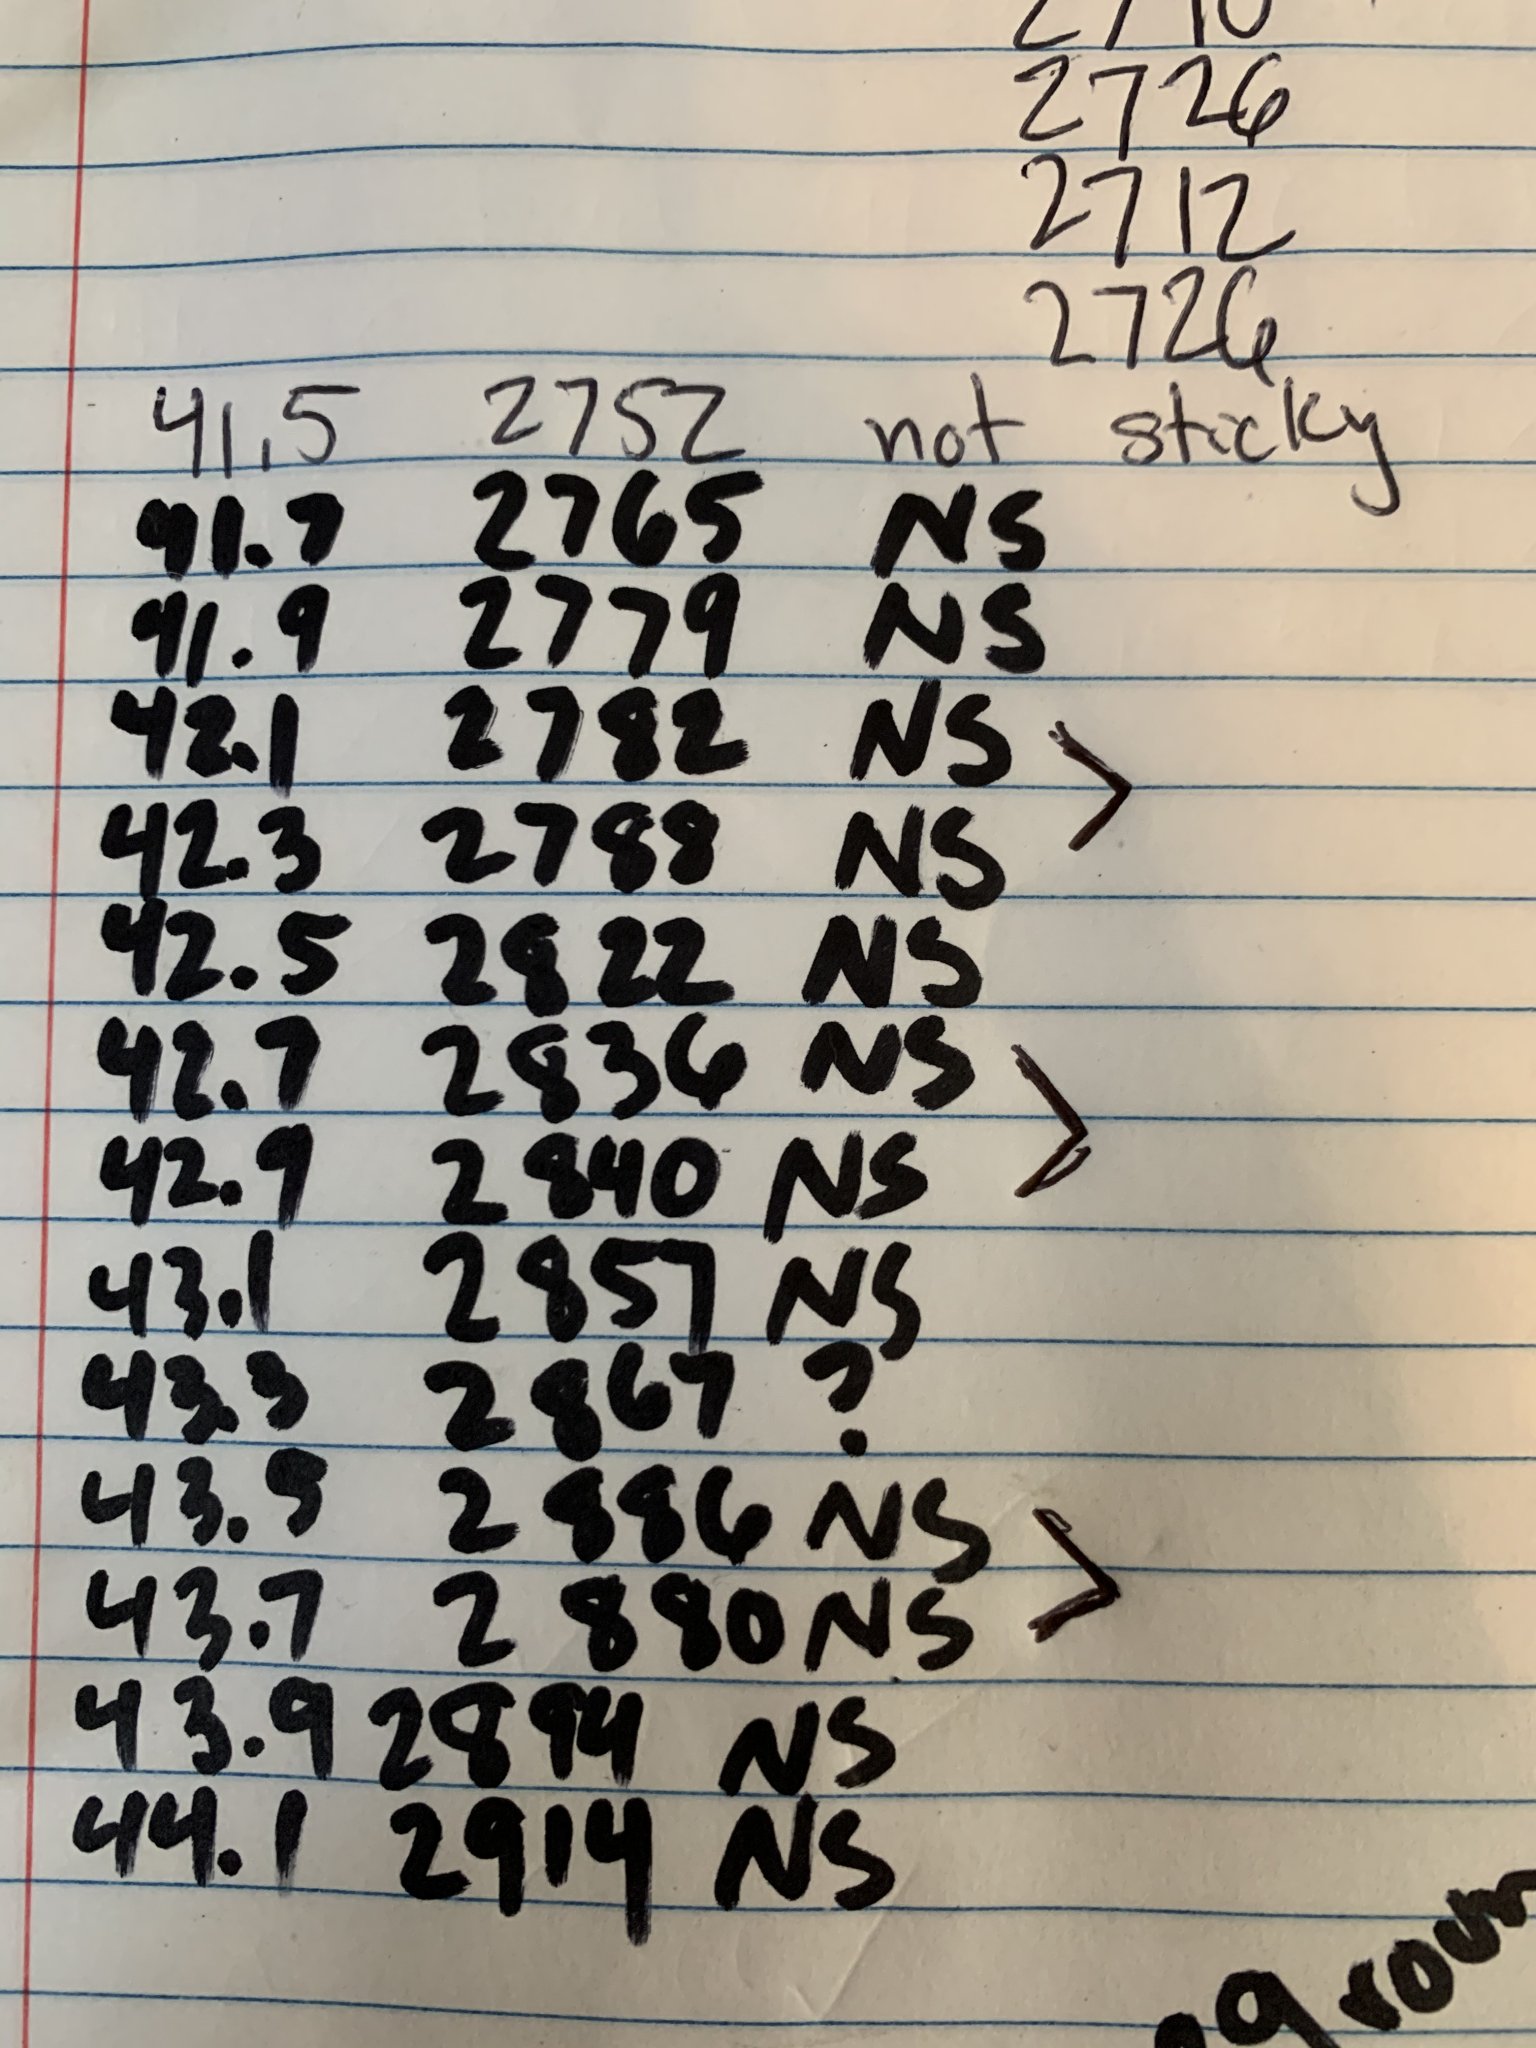 2710
2726
2712
2726
41.5 2752 not sticky
41.7 2765 NS
41.9 2779 NS
42.1 2782 NS >
42.3 2788 NS
42.5 2822 NS
42.7 2836 NS >
42.9 2840 NS
43.1 2857 NS
43.3 2867 ?
43.5 2886 NS >
43.7 2880 NS
43.9 2894 NS
44.1 2914 NS